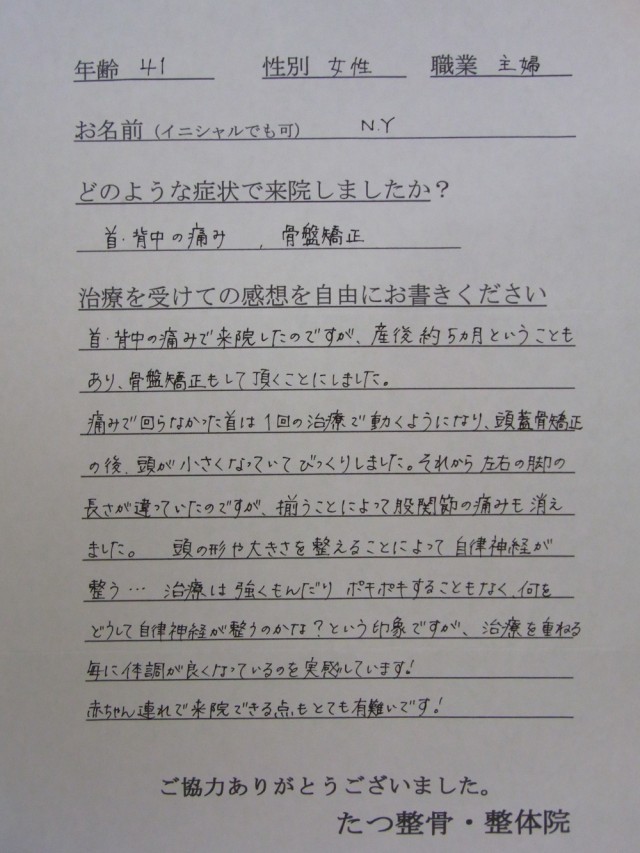 年齢 41 性別 女性 職業 主婦
お名前(イニシャルでも可) N.Y
どのような症状で来院しましたか?
首・背中の痛み 、骨盤矯正
治療を受けての感想を自由にお書きください
首・背中の痛みで来院したのですが、産後約5ヵ月ということも
あり、骨盤矯正もして頂くことにしました。
痛みで回らなかった首は1回の治療で動くようになり、頭蓋骨矯正
の後、頭が小さくなっていてびっくりしました。それから左右の脚の
長さが違っていたのですが、揃うことによって股関節の痛みも消え
ました。 頭の形や大きさを整えることによって自律神経が
整う… 治療は強くもんだりポキポキすることもなく、何を
どうして自律神経が整うのかな?という印象ですが、治療を重ねる
毎に体調が良くなっているのを実感しています!
赤ちゃん連れで来院できる点もとても有難いです!
ご協力ありがとうございました。
たつ整骨・整体院